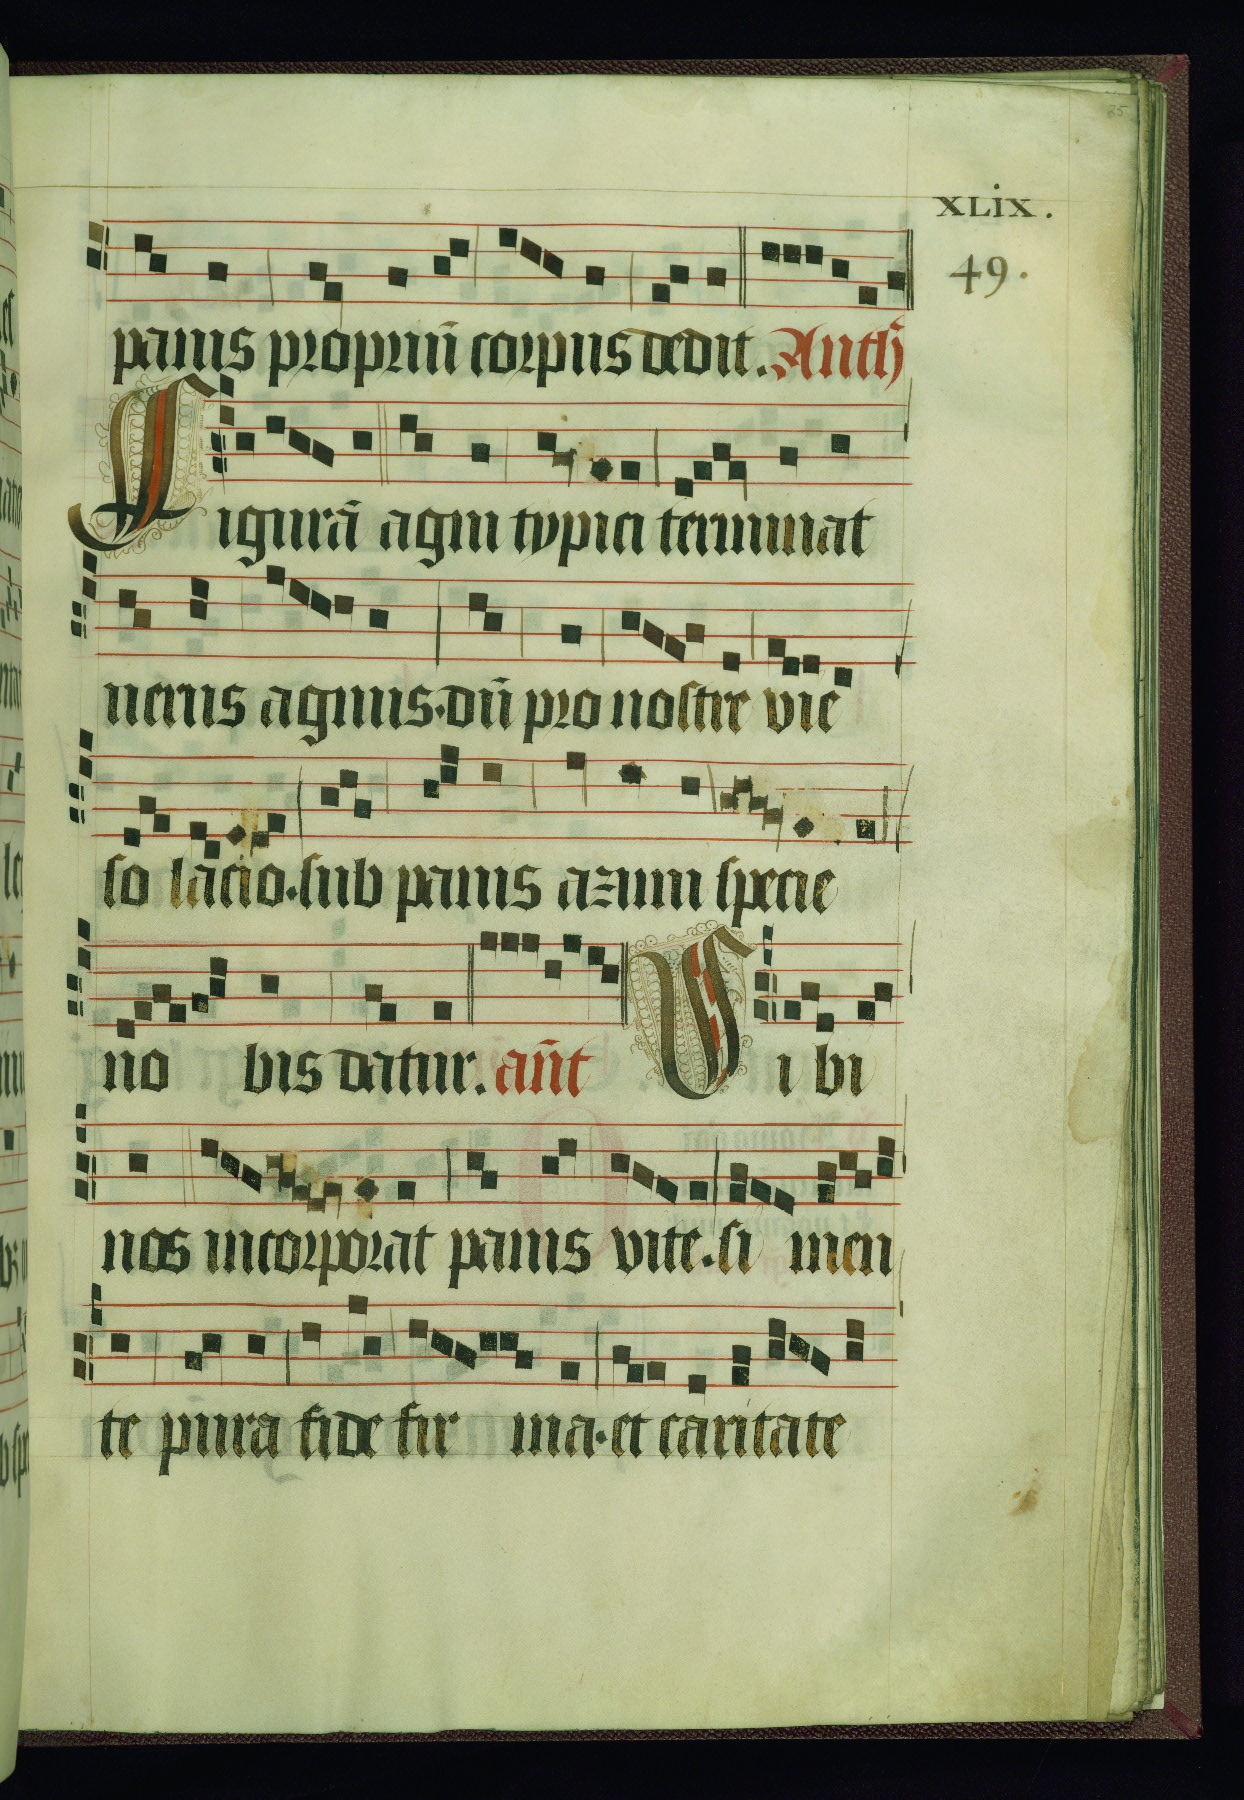 35
XLIX.
49.
panis propriū corpus dedit. Anth
Figurā agni typici terminat
nerus agnus. dū pro nostre vie
so lacio. sub panis azimi specie
no bis datur. añt V i bi
nos incorporat panis vite. si men
te pura fide fir ma. et caritate